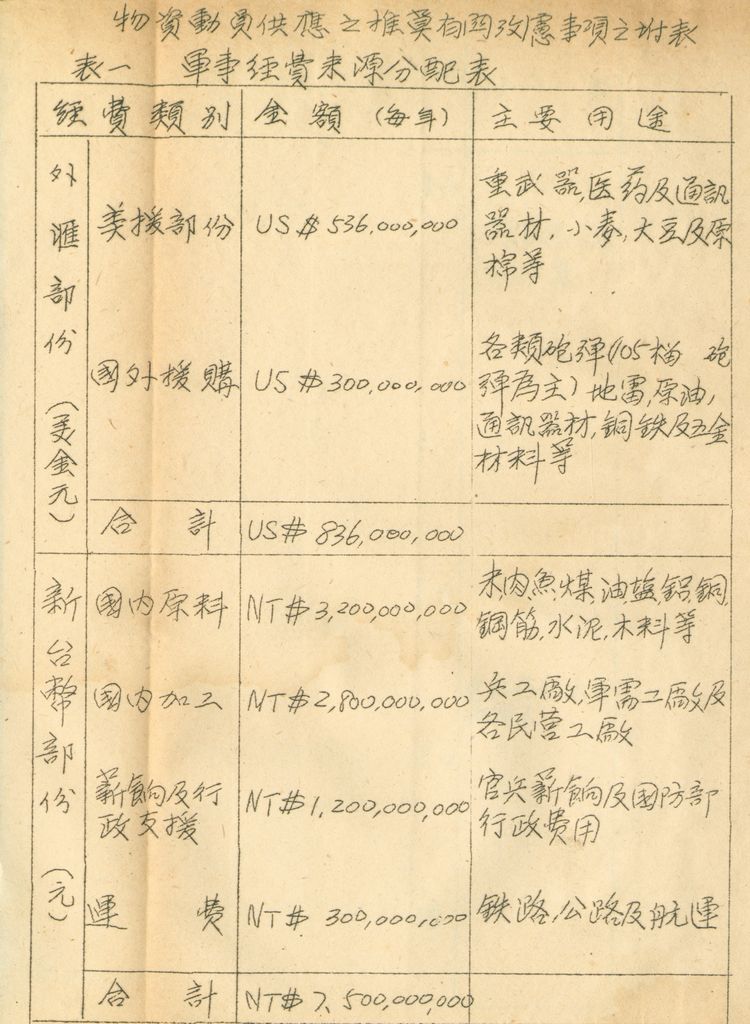 物資動員供應之推算有關改憲事項之附表
表一 軍事經費來源分配表
經費類別 金額 (每年) 主要用途
外匯部份(美金元)
美援部份 US$536,000,000 重武器,医药及通訊
器材,小麥,大豆及原
棉等
國外援購 US$300,000,000 各類砲弹(105榴 砲
弹為主)地雷,原油,
通訊器材,銅铁及五金
材料等
合計 US$836,000,000
新台幣部份(元)
國内原料 NT$3,200,000,000 米,肉,魚,煤,油,盐,鋁,銅,
鋼筋,水泥,木料等
國内加工 NT$2,800,000,000 兵工廠,軍需工廠及
各民营工廠
薪餉及行
政支援 NT$1,200,000,000 官兵薪餉及国防部
行政費用
運費 NT$300,000,000 鉄路,公路及航運
合計 NT$7,500,000,000